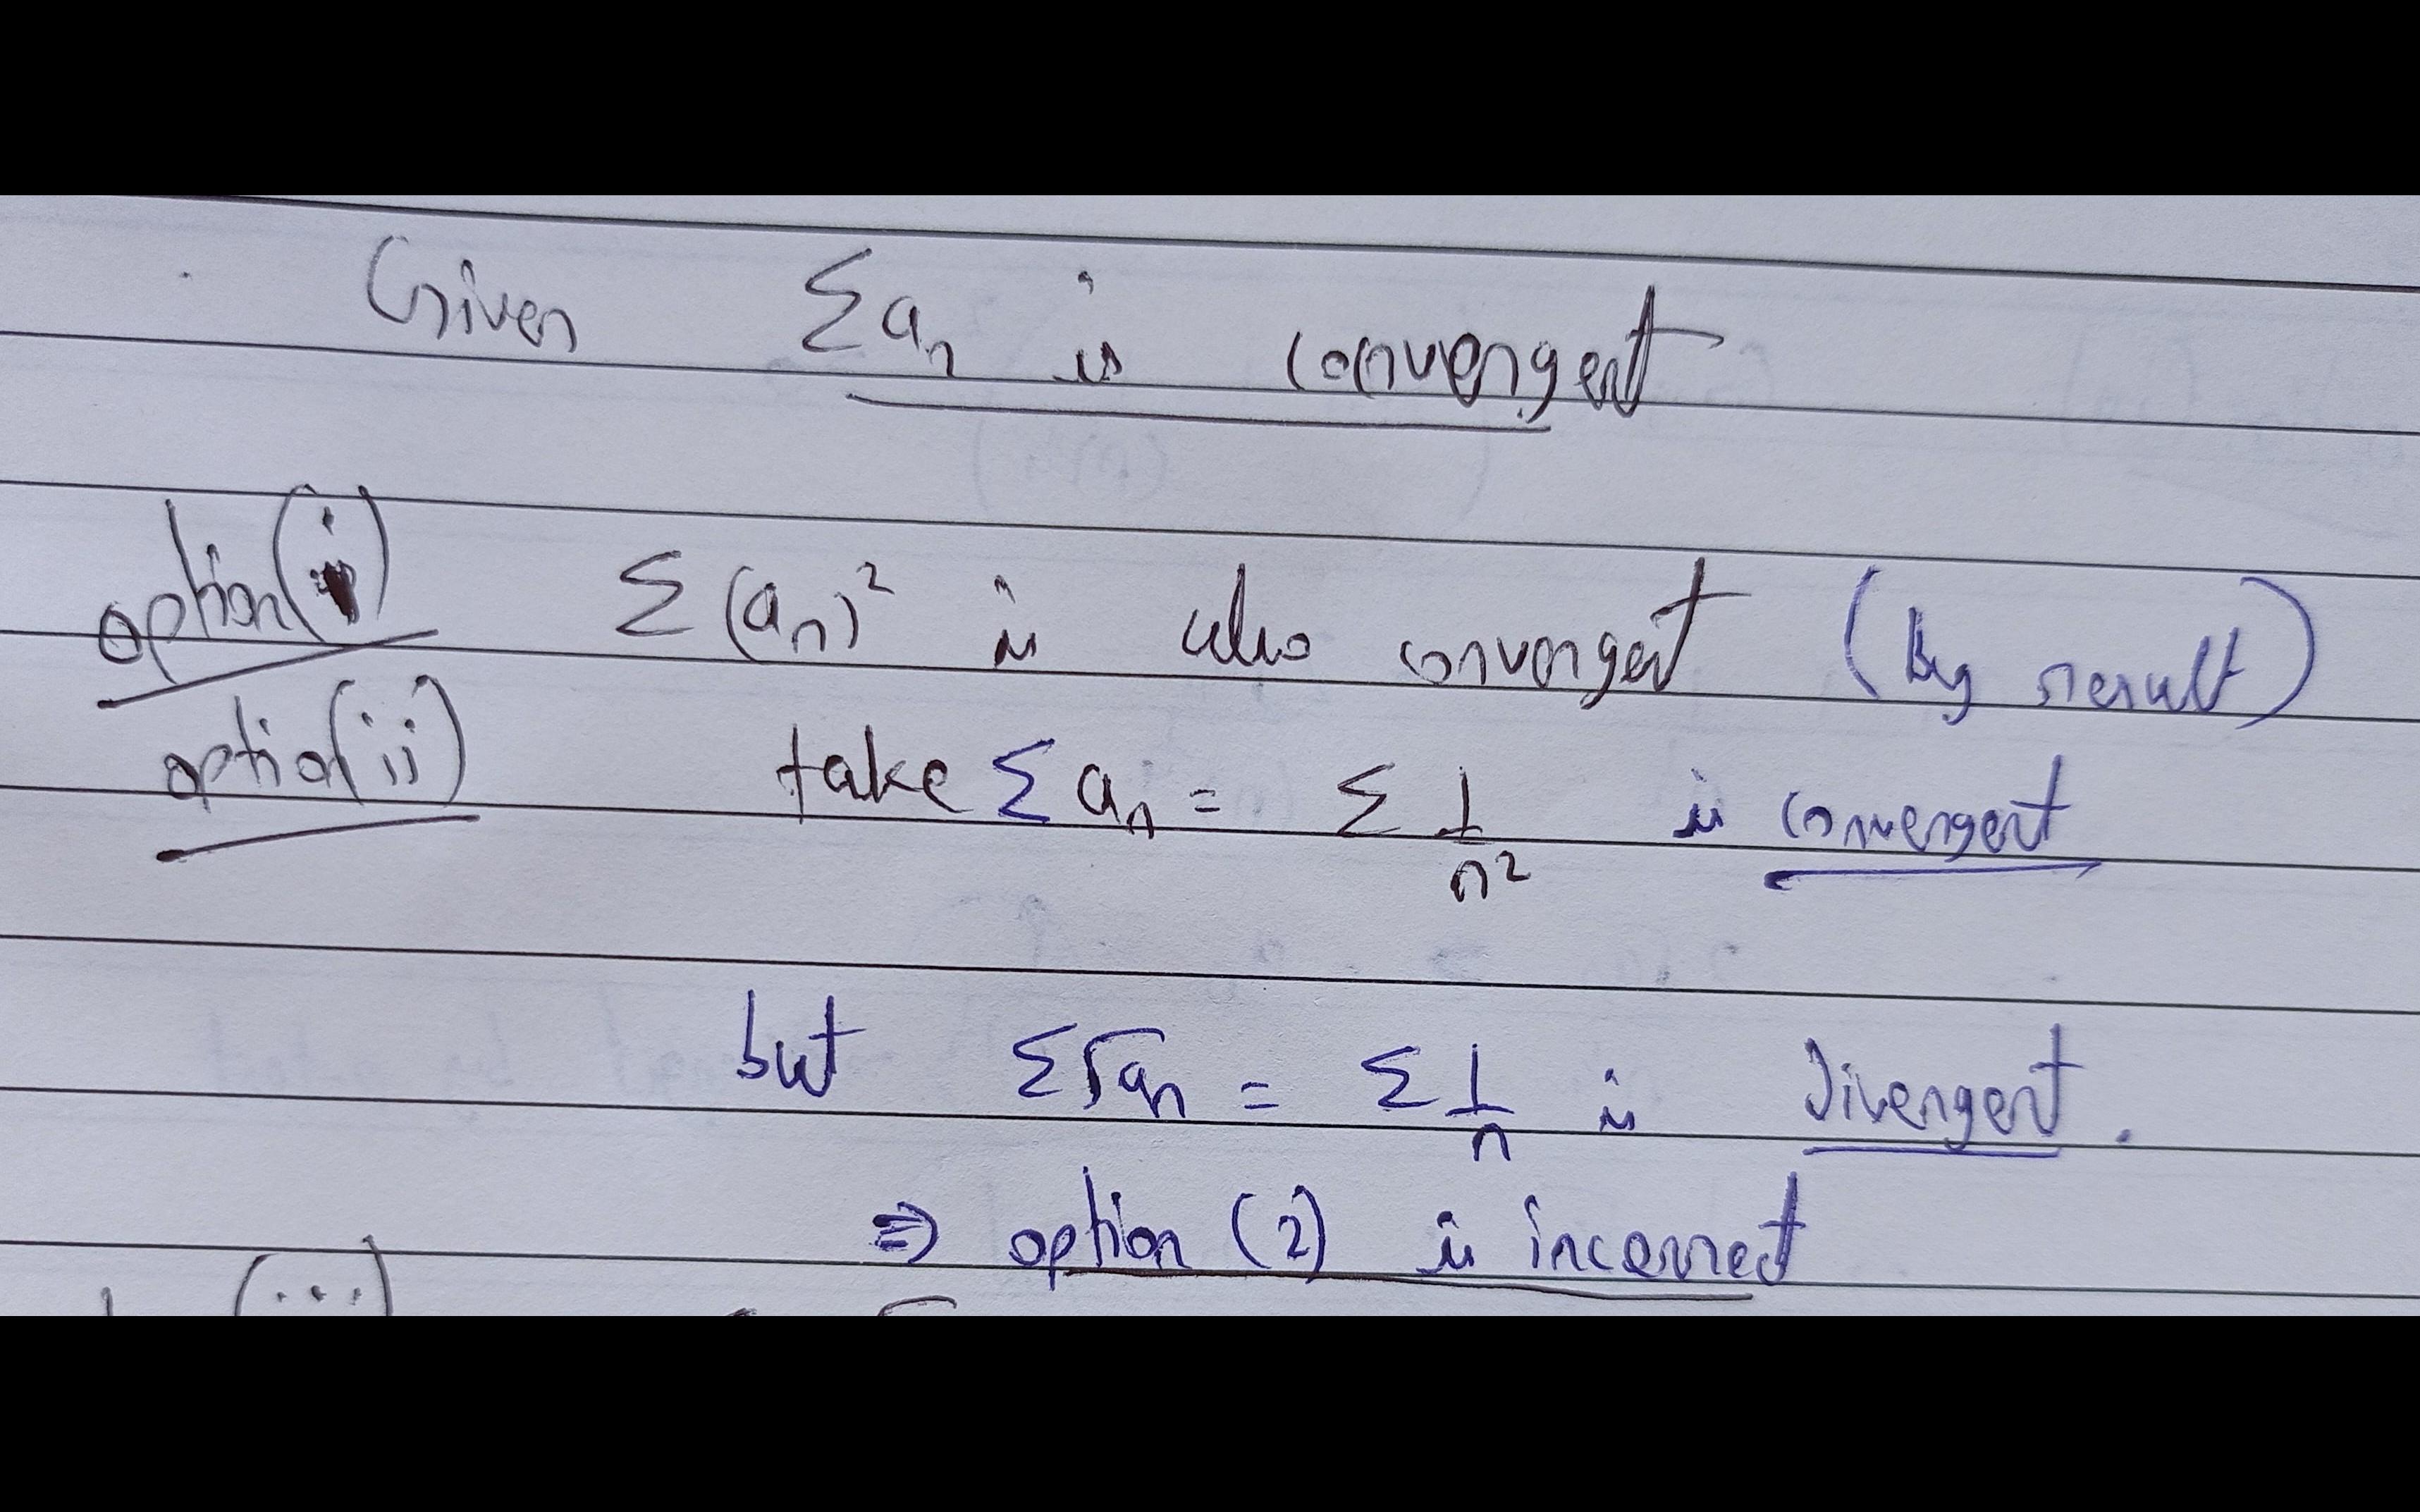 Given Σaₙ is convergent
option(i) Σ(aₙ)² is also convergent (by result)
option(ii) take Σaₙ = Σ 1/n² is convergent
but Σ√aₙ = Σ 1/n is Divergent.
⇒ option (2) is incorrect
(iii)